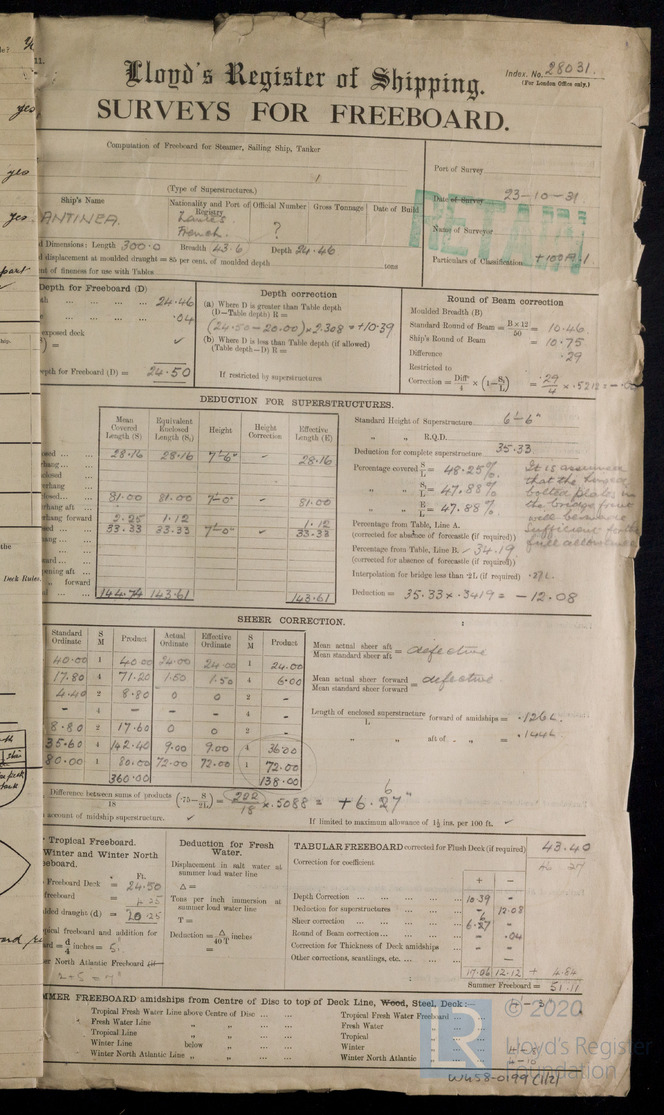 Lloyd's Register of Shipping.
Index. No. 28031.
(For London Office only.)
SURVEYS FOR FREEBOARD.
Computation of Freeboard for Steamer, Sailing Ship, Tanker
Port of Survey
(Type of Superstructures.)
Date of Survey 23-10-31
RETAIN
Ship's Name
Nationality and Port of Registry
Official Number
Gross Tonnage
Date of Build
Name of Surveyor
ANTINEA.
French.
?
Particulars of Classification +100A.1
Dimensions: Length 300.0 Breadth 43.6 Depth 24.46
displacement at moulded draught = 85 per cent. of moulded depth tons
of fineness for use with Tables
Depth for Freeboard (D)
24.46
.04
exposed deck
Depth for Freeboard (D) = 24.50
Depth correction
(a) Where D is greater than Table depth
(D—Table depth) R =
(24.50-20.00) × 2.308 = +10.39
(b) Where D is less than Table depth (if allowed)
(Table depth—D) R =
If restricted by superstructures
Round of Beam correction
Moulded Breadth (B)
Standard Round of Beam = B×12/50 = 10.46
Ship's Round of Beam = 10.75
Difference .29
Restricted to
Correction = Diff/4 × (1-S₁/L) = .29/4 × .5212 = -.0
DEDUCTION FOR SUPERSTRUCTURES.
Mean Covered Length (S)
Equivalent Enclosed Length (S₁)
Height
Height Correction
Effective Length (E)
28.16 28.16 7'-6" 28.16
81.00 81.00 7'-0" 81.00
overhang aft
overhang forward 2.25 1.12 1.12
33.33 33.33 7'-0" 33.33
144.74 143.61 143.61
Standard Height of Superstructure 6'-6"
" " R.Q.D.
Deduction for complete superstructure 35.33
Percentage covered S/L = 48.25%
" " S₁/L = 47.88%
" " E/L = 47.88%
Percentage from Table, Line A.
(corrected for absence of forecastle (if required))
Percentage from Table, Line B. 34.19
(corrected for absence of forecastle (if required))
Interpolation for bridge less than .2L (if required) .27L.
Deduction = 35.33 × .3419 = -12.08
It is assumed
that the hinged
bolted plates in
the bridge front
sufficient for the
full allowance
Deck Rules.
SHEER CORRECTION.
Standard Ordinate
S M
Product
Actual Ordinate
Effective Ordinate
S M
Product
40.00 1 40.00 24.00 24.00 1 24.00
17.80 4 71.20 1.50 1.50 4 6.00
4.40 2 8.80 0 0 2 -
- 4 - - - 4 -
8.80 2 17.60 0 0 2 -
35.60 4 142.40 9.00 9.00 4 36.00
80.00 1 80.00 72.00 72.00 1 72.00
360.00 138.00
Mean actual sheer aft / Mean standard sheer aft = defective
Mean actual sheer forward / Mean standard sheer forward = defective
Length of enclosed superstructure / L forward of amidships = .126L.
" " aft of " = .144L
Difference between sums of products / 18 (.75-S/2L) = 222/18 × .5088 = +6.27"
account of midship superstructure.
If limited to maximum allowance of 1½ ins. per 100 ft.
Tropical Freeboard.
Winter and Winter North
Ft.
Freeboard Deck = 24.50
freeboard = 4.25
draught (d) = 20.25
freeboard and addition for
= d/4 inches = 5"
North Atlantic Freeboard
2+5 = 7"
Deduction for Fresh Water.
Displacement in salt water at summer load water line
Δ =
Tons per inch immersion at summer load water line
T =
Deduction = Δ/40T inches
TABULAR FREEBOARD corrected for Flush Deck (if required) 43.40
Correction for coefficient
+ -
Depth Correction 10.39 -
Deduction for superstructures - 12.08
Sheer correction 6.27 -
Round of Beam correction - .04
Correction for Thickness of Deck amidships - -
Other corrections, scantlings, etc. -
17.06 12.12 + 4.84
Summer Freeboard = 51.11
SUMMER FREEBOARD amidships from Centre of Disc to top of Deck Line, Wood, Steel, Deck:— 4-3"
Tropical Fresh Water Line above Centre of Disc
Fresh Water Line " "
Tropical Line " "
Winter Line below "
Winter North Atlantic Line " "
Tropical Fresh Water Freeboard
Fresh Water "
Tropical "
Winter " 4-8
Winter North Atlantic " 4-10
© 2020
LR
Lloyd's Register
Foundation
W458-0199 (1/2)